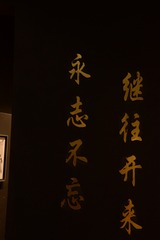 继往开来
永志不忘